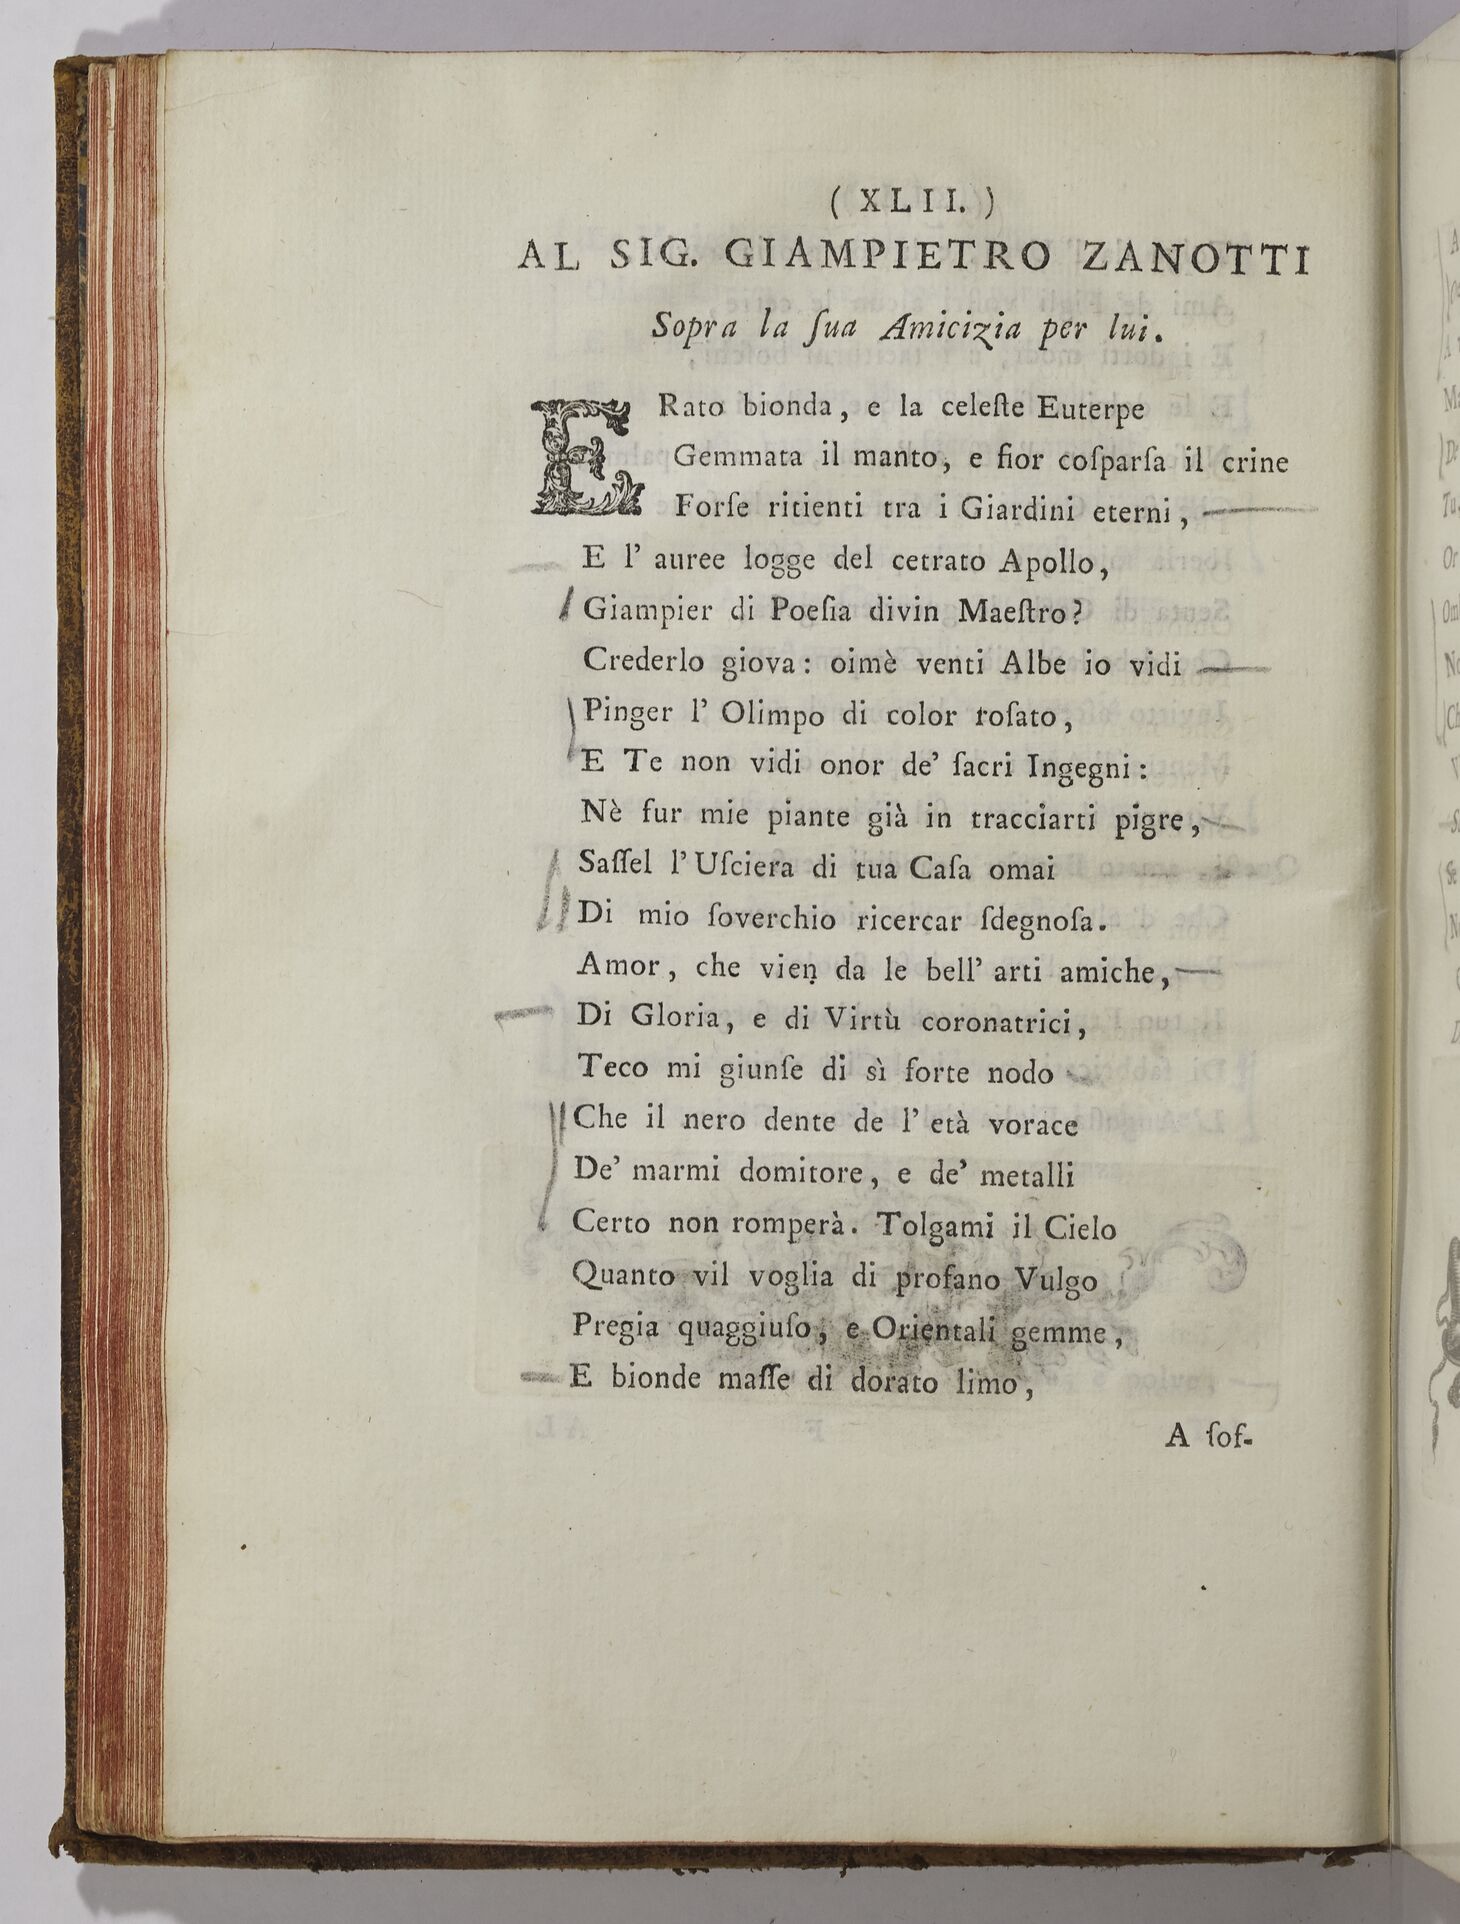 ( XLII. )
AL SIG. GIAMPIETRO ZANOTTI
Sopra la ſua Amicizia per lui.
ERato bionda, e la celeſte Euterpe
Gemmata il manto, e fior coſparſa il crine
Forſe ritienti tra i Giardini eterni,
E l' auree logge del cetrato Apollo,
Giampier di Poeſia divin Maeſtro?
Crederlo giova: oimè venti Albe io vidi
Pinger l' Olimpo di color roſato,
E Te non vidi onor de' ſacri Ingegni:
Nè fur mie piante già in tracciarti pigre,
Saſſel l'Uſciera di tua Caſa omai
Di mio ſoverchio ricercar ſdegnoſa.
Amor, che vien da le bell' arti amiche,
Di Gloria, e di Virtù coronatrici,
Teco mi giunſe di sì forte nodo
Che il nero dente de l' età vorace
De' marmi domitore, e de' metalli
Certo non romperà. Tolgami il Cielo
Quanto vil voglia di profano Vulgo
Pregia quaggiuſo, e Orientali gemme,
E bionde maſſe di dorato limo,
A ſof-